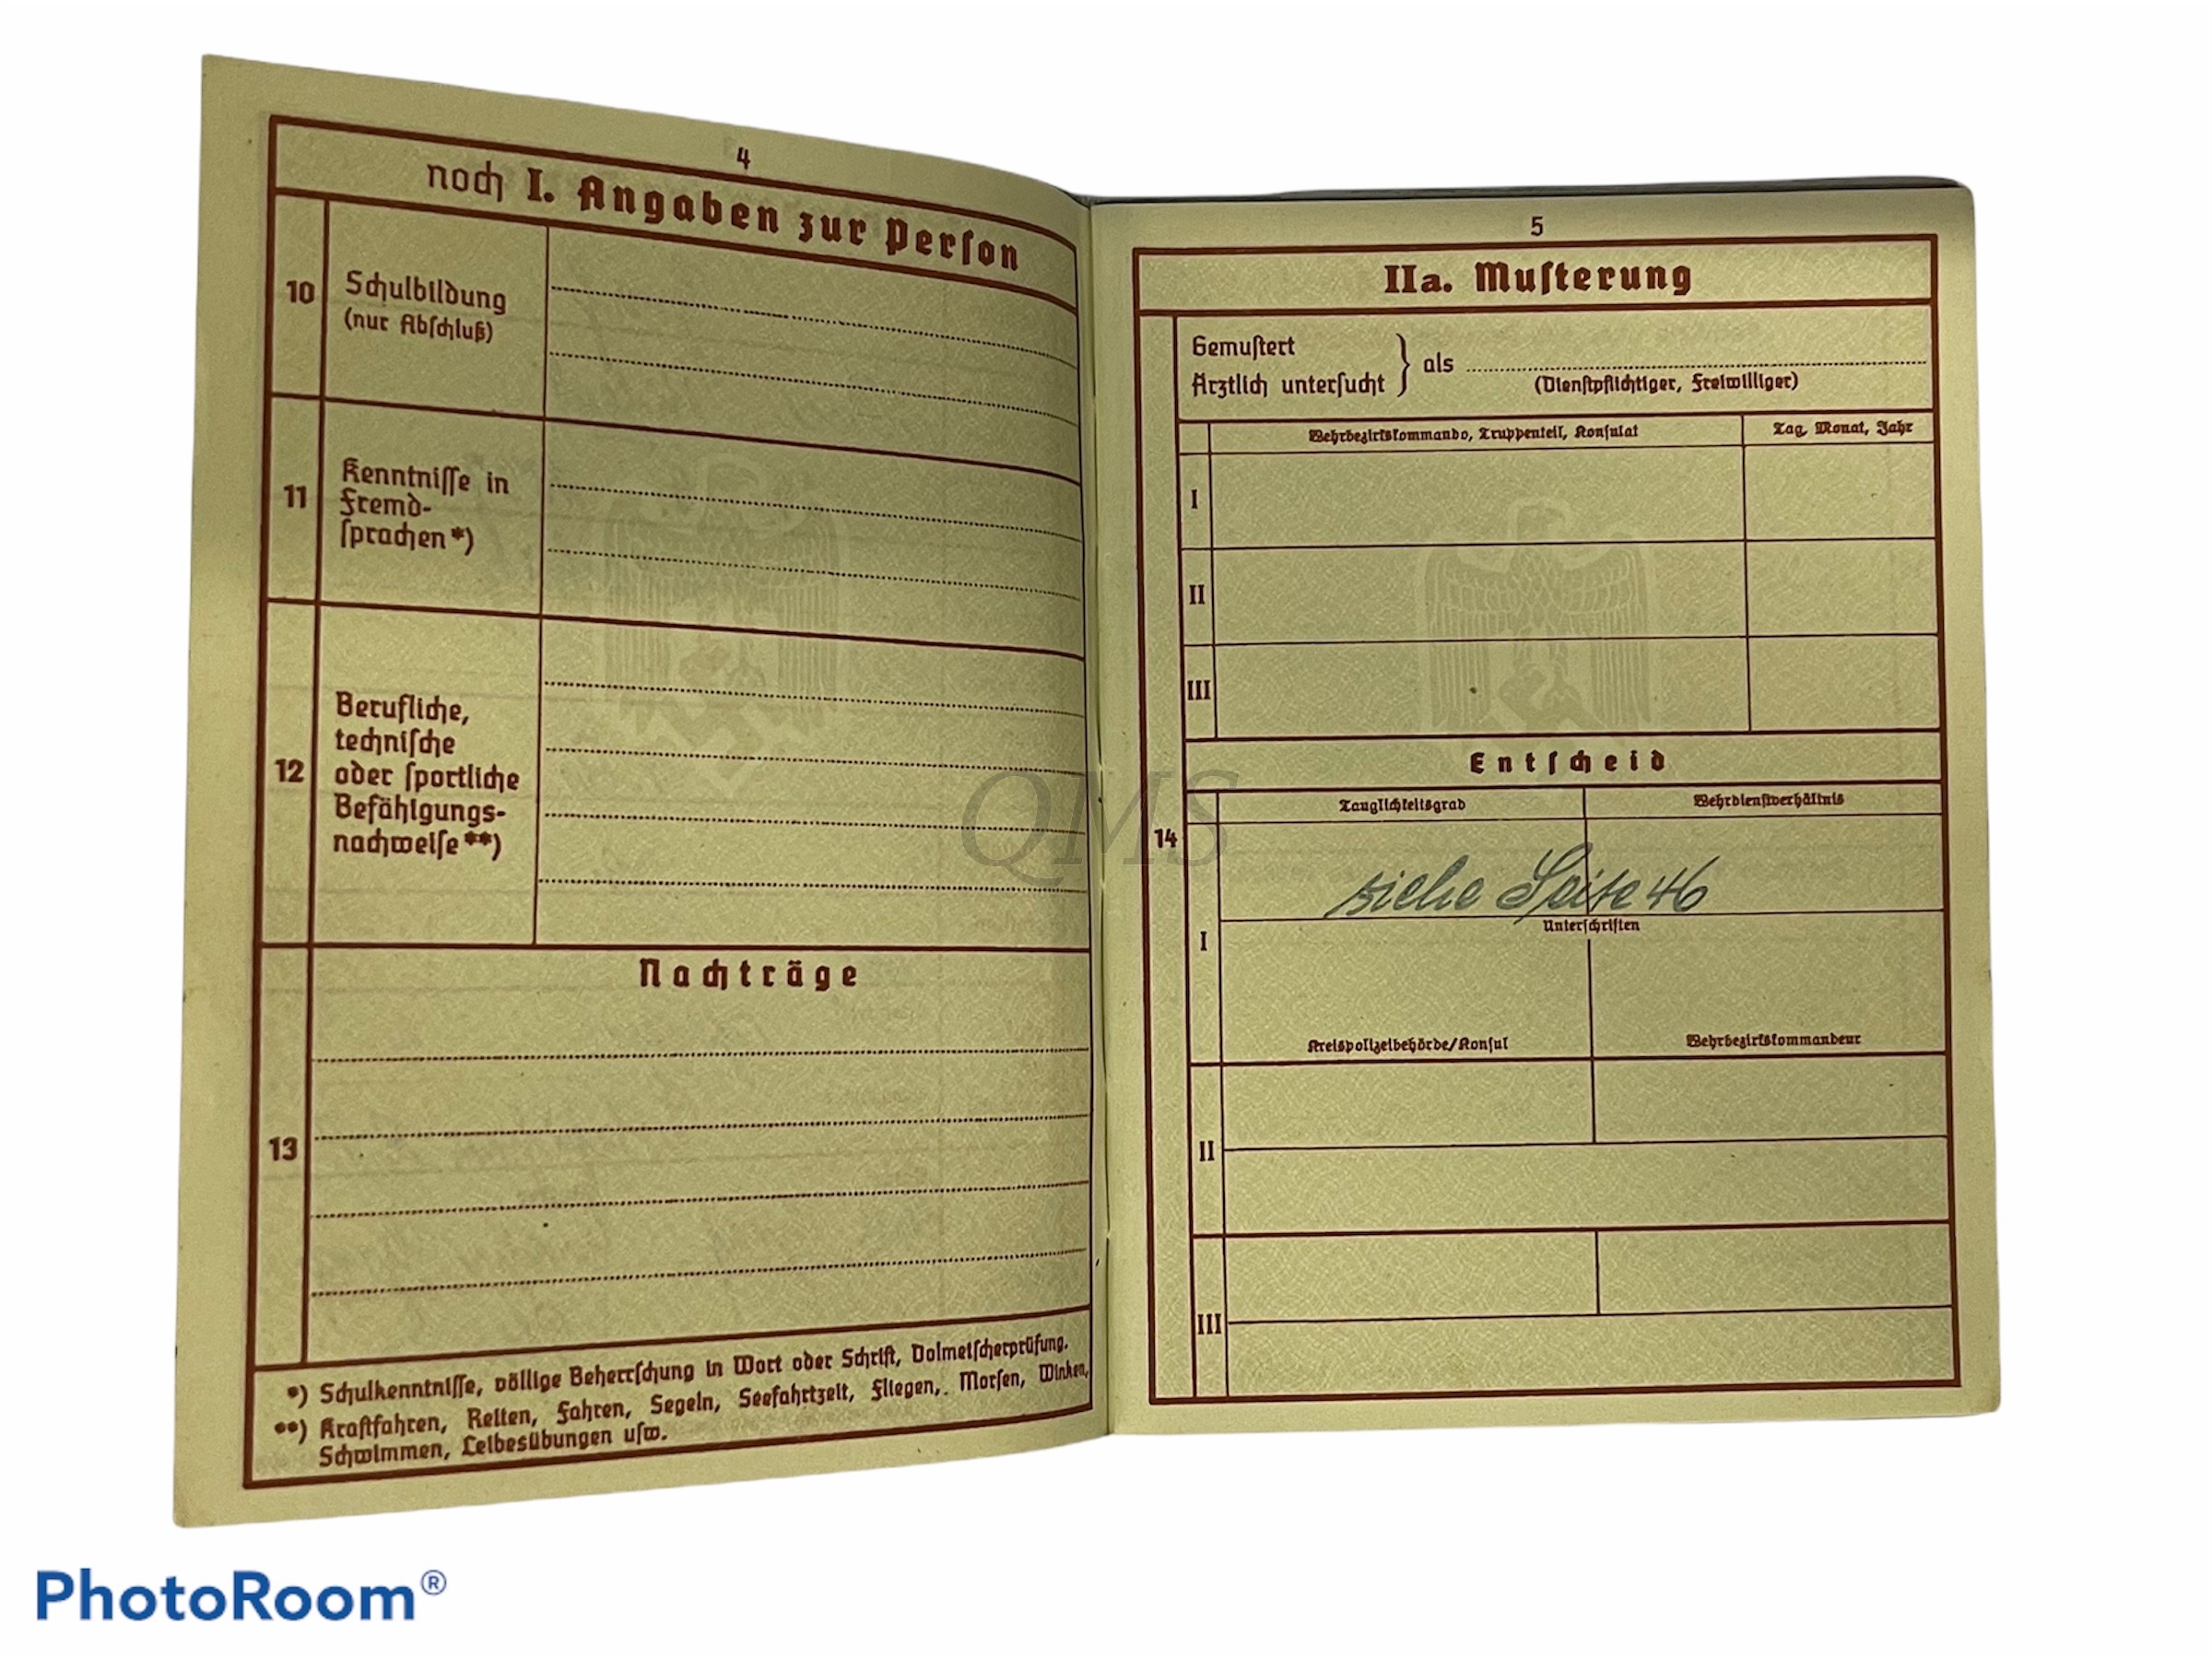 4
noch I. Angaben zur Perſon
10
Schulbildung
(nur Abſchluß)
11
Kenntniſſe in
Fremd-
ſprachen*)
12
Berufliche,
techniſche
oder ſportliche
Befähigungs-
nachweiſe**)
Nachträge
13
*) Schulkenntniſſe, völlige Beherrſchung in Wort oder Schrift, Dolmetſcherprüfung.
**) Kraftfahren, Reiten, Fahren, Segeln, Seefahrtzeit, Fliegen, Morſen, Winken,
Schwimmen, Leibesübungen uſw.
5
IIa. Muſterung
Gemuſtert
Ärztlich unterſucht } als
(Dienſtpflichtiger, Freiwilliger)
Wehrbezirkskommando, Truppenteil, Konſulat
Tag, Monat, Jahr
I
II
III
Entſcheid
14
Tauglichkeitsgrad
Wehrdienſtverhältnis
siehe Seite 46
I
Unterſchriften
Kreispolizeibehörde/Konſul
Wehrbezirkskommandeur
II
III
QMS
PhotoRoom®